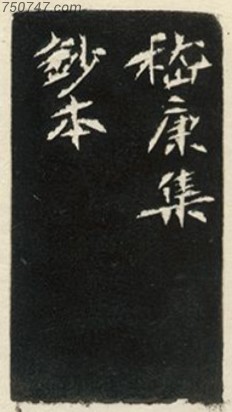 750747.com
嵇康集
鈔本